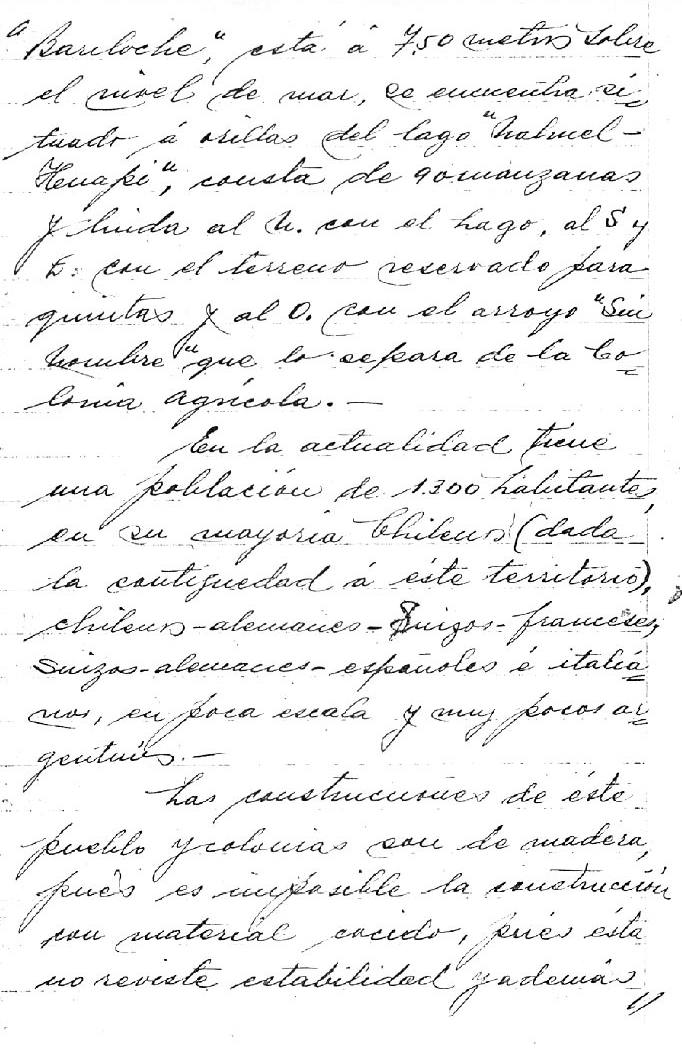 "Bariloche", está á 750 metros sobre
el nivel de mar, se encuentra si=
tuado á orillas del lago "Nahuel-
Huapí", consta de 90 manzanas
y linda al N. con el Lago, al S y
E. con el terreno reservado para
quintas y al O. con el arroyo "Sin
Nombre" que lo separa de la Co=
lonia Agrícola. -
En la actualidad tiene
una población de 1.300 habitantes,
en su mayoría Chilenos (dada
la contiguedad á éste territorio),
chilenos-alemanes-Suizos-franceses,
Suizos-alemanes-españoles é italia=
nos, en poca escala y muy pocos ar=
gentinos. -
Las construcciones de éste
pueblo y colonias son de madera,
pués es imposible la construcción
con material cocido, pués ésta
no reviste estabilidad y además
//